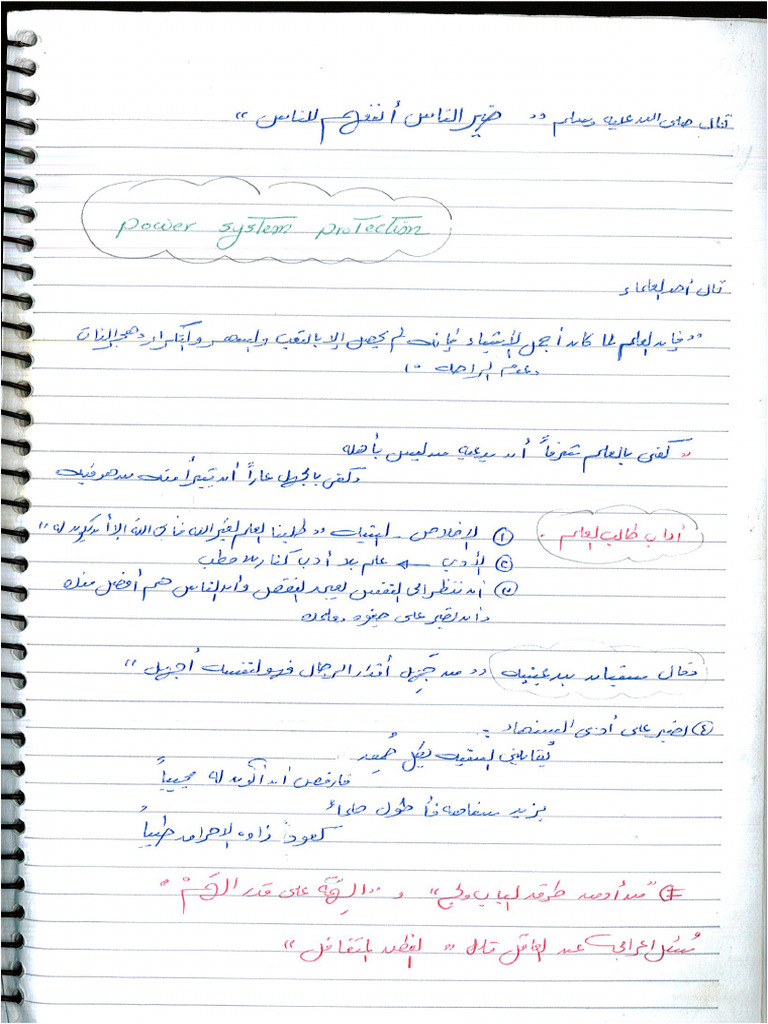 قال صلى الله عليه وسلم " خير الناس أنفعهم للناس "
power system protection
قال أحد العلماء
" فإن العلم لما كان أجمل الأشياء فإنه لم يحصل إلا بالتعب والسهر والتكرار وهجر اللذات
وعدم الراحة "
" كفى بالعلم شرفاً أن يدعيه من ليس بأهله
وكفى بالجهل عاراً أن يتبرأ منه من هو فيه
آداب طالب العلم . ① الإخلاص - النية " طلبنا العلم لغير الله فأبى الله إلا أن يكون له "
② الأدب ← علم بلا أدب كنار بلا حطب
③ أن تنظر إلى النفس بعين النقص وأن الناس هم أفضل منك
وأن تصبر على
وقال سفيان بن عيينة " من جهل أقدار الرجال فهو لنفسه أجهل "
④ اصبر على أذى السفهاء :
يقابلني السفيه بكل
فارفض أن أكون له مجيباً
يزيد سفاهة فأ حلماً
كعود زاده الاحراق طيباً
"من أدمن طرق الباب ولج" و "الهِمَّة على قدر الهَمّ "
سُئل اعرابي عن العاقل قال " الفطن المتغافل "